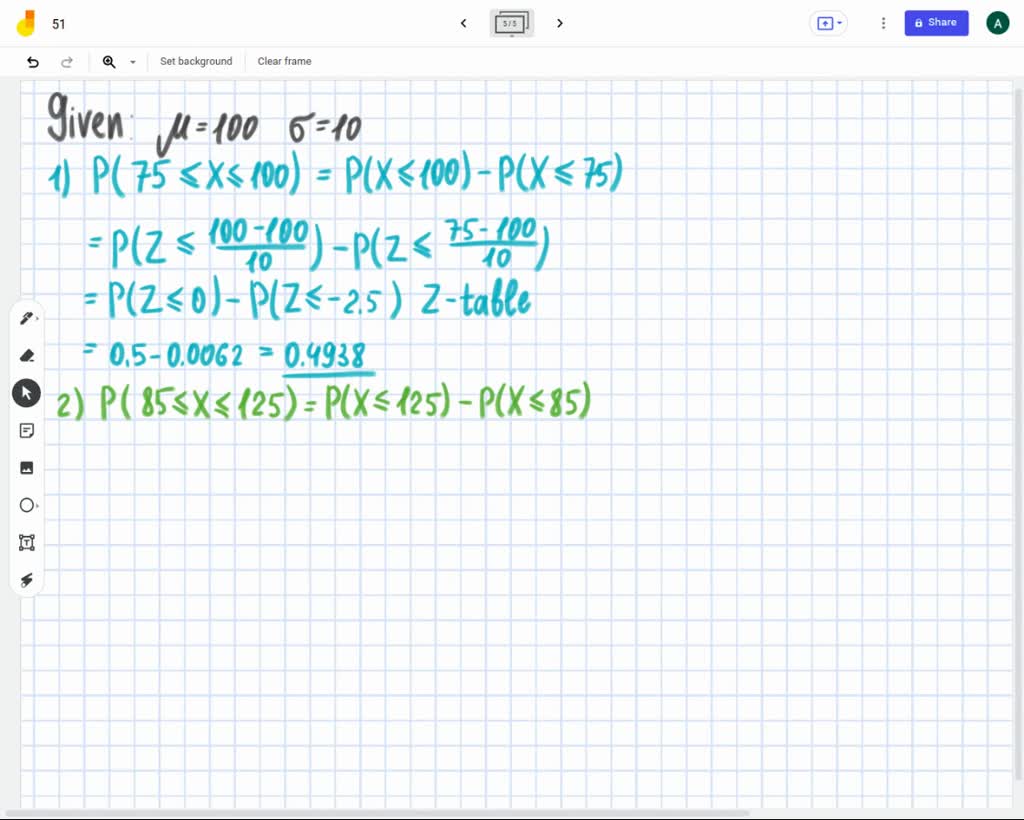 51
5/5
Share
A
Set background
Clear frame
Given: μ=100 σ=10
1) P(75≤X≤100) = P(X≤100)-P(X≤75)
= P(Z ≤ (100-100)/10) - P(Z ≤ (75-100)/10)
= P(Z≤0) - P(Z≤-2.5) Z-table
= 0.5-0.0062 = 0.4938
2) P(85≤X≤125) = P(X≤125) - P(X≤85)
T